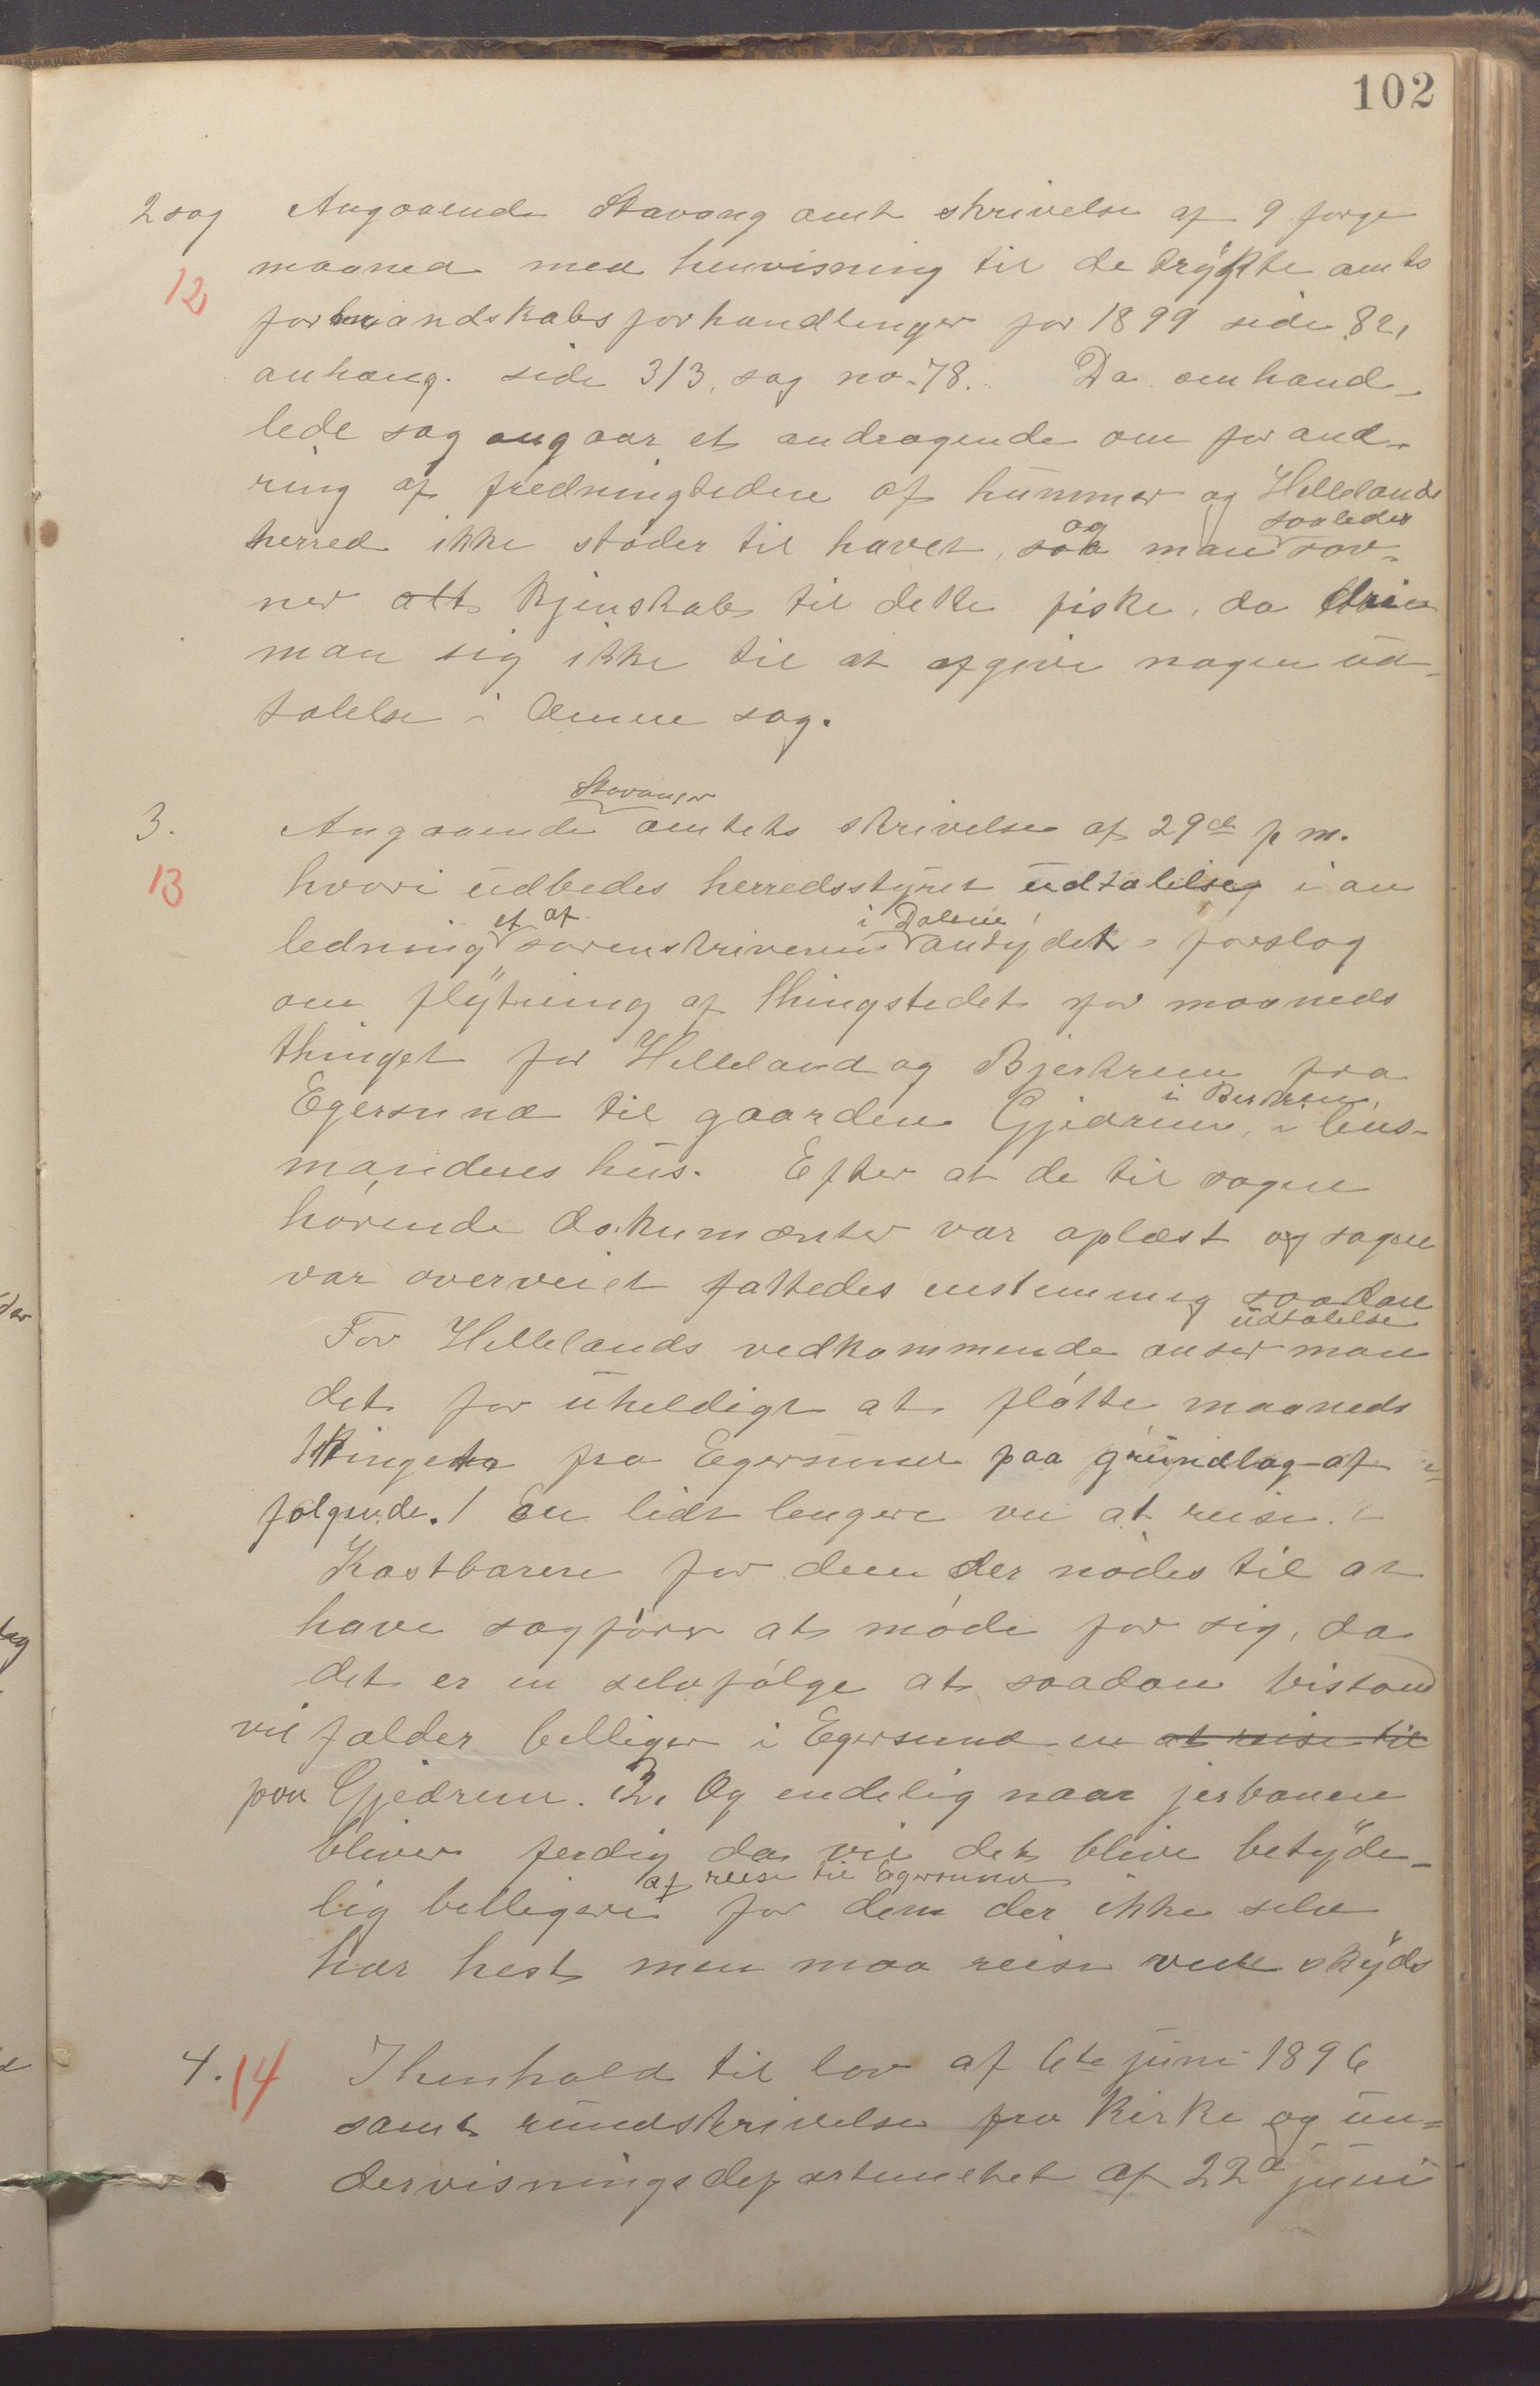 102
2 sag Angaaende Stavang amt skrivelse af 9 forge
12 maaned med henvisning til de trykte amts
formandskabsforhandlinger for 1899 side 82,
anhang. side 313, sag no. 78. Da omhand-
lede sag angaar et andragende om forand-
ring af fredningtiden af hummer og Hellelands
herred ikke støder til havet, og man saaledes sav-
ner alt kjenskab til dette fiske, da
man sig ikke til at afgive nogen ud-
talelse i denne sag.
3. Angaaende Stavanger amtets skrivelse af 29de p m.
13 hvori udbedes herredsstyret udtalelse i an
ledning et af sorenskriveren i Dalene antydet forslag
om flytning af thingstedet for maaneds
thinget for Helleland og Bjerkrem fra
Egersund til gaarden Gjedrem, i Berkrem, i lens-
mandens hus. Efter at de til sagen
hørende dokumænter var oplæst og sagen
var overveiet fattedes enstemmig saadan
udtalelse
For Hellelands vedkommende anser man
det for uheldigt at fløtte maaneds
thinget fra Egersund paa grundlag af
følgende. 1 En lidt lengere vei at reise.
Kostbarere for dem der nødes til at
have sagfører at møde for sig, da
det er en selvfølge at saadan bistand
vil falder billiger i Egersund en at reise til
paa Gjedrem. 2, Og endelig naar jerbanen
bliver ferdig da vil det blive betyde-
lig billigere at reise til Egersund for dem der ikke selv
har hest men maa reise ved skyds
4. 14 I henhold til lov af 6te juni 1896
samt rundskrivelse fra Kirke og un-
dervisningsdepartementet af 22d juni